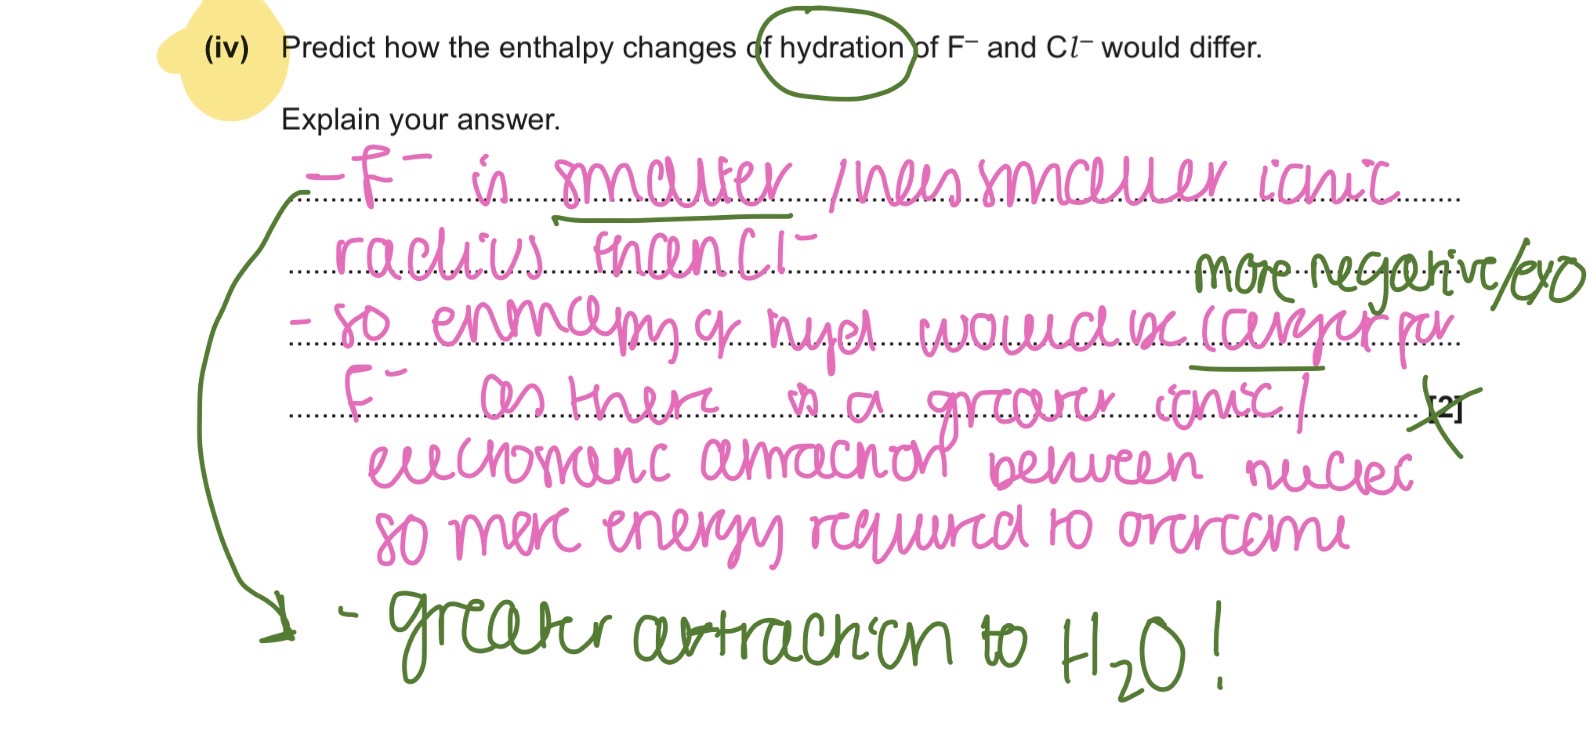 (iv) Predict how the enthalpy changes of hydration of F⁻ and Cl⁻ would differ.
Explain your answer.
- F⁻ is smaller / has smaller ionic
radius than Cl⁻
more negative/exo
- so enthalpy of hyd would be larger for
F⁻ as there is a greater ionic/
[2]
electrostatic attraction between nuclei
so more energy required to overcome
- greater attraction to H₂O!